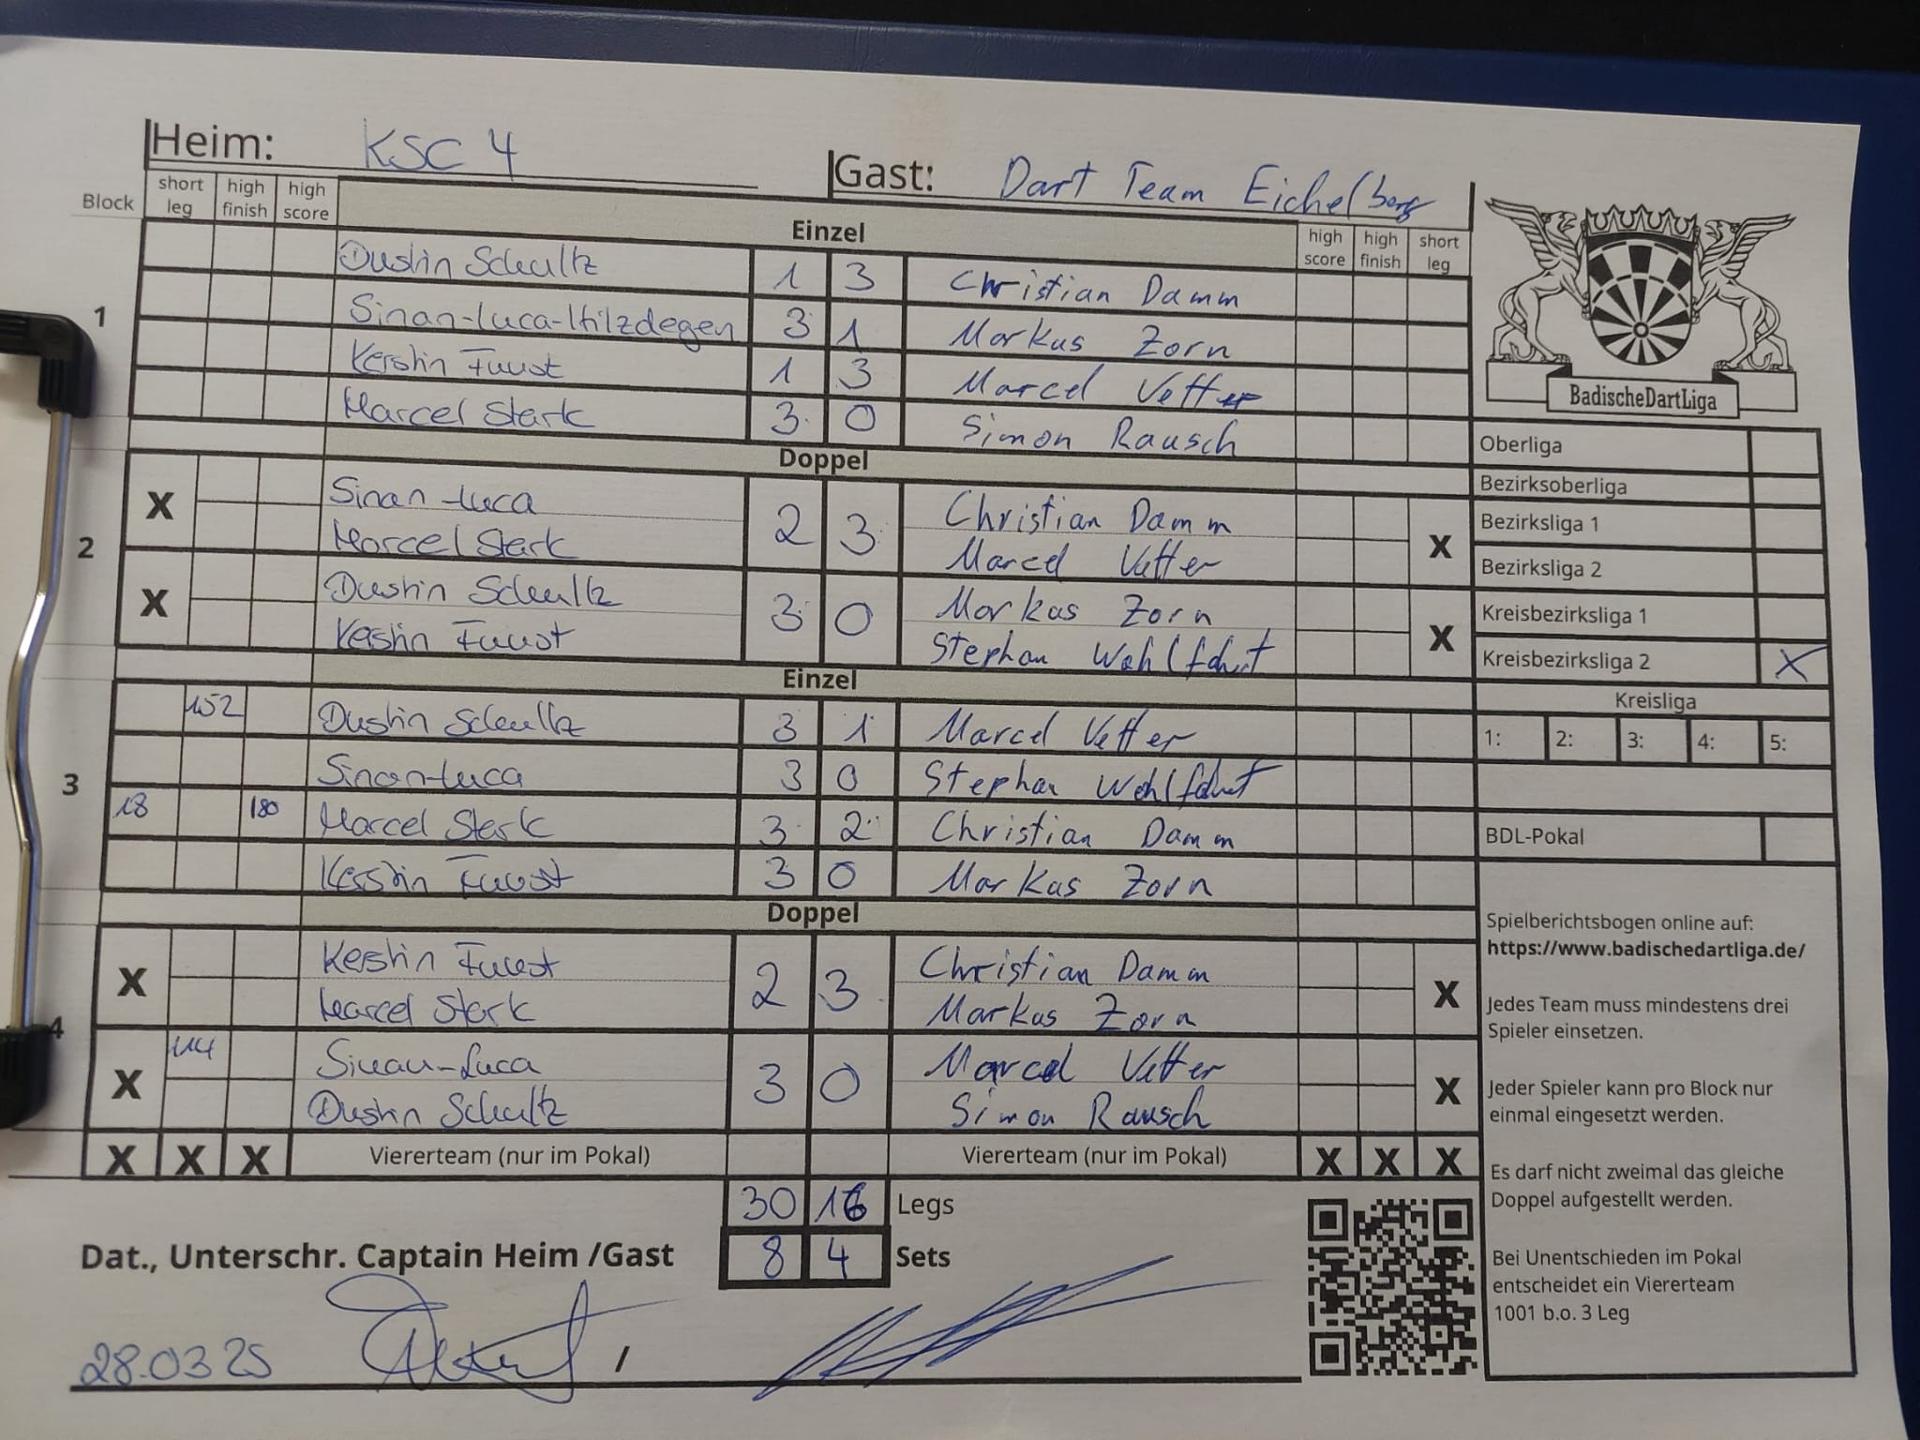 Heim: KSC 4
Gast: Dart Team Eichelberg
Block short leg high finish high score
Einzel
high score high finish short leg
1
Dustin Schultz 1 3 Christian Damm
Sinan-Luca-Hilzdegen 3 1 Markus Zorn
Kerstin Faust 1 3 Marcel Vetter
Marcel Stark 3 0 Simon Rausch
Doppel
2
X Sinan-Luca 2 3 Christian Damm X
Marcel Stark Marcel Vetter
X Dustin Schultz 3 0 Markus Zorn X
Kerstin Faust Stephan Wohlfahrt
Einzel
3
152 Dustin Schultz 3 1 Marcel Vetter
Sinan-Luca 3 0 Stephan Wohlfahrt
18 180 Marcel Stark 3 2 Christian Damm
Kerstin Faust 3 0 Markus Zorn
Doppel
4
X Kerstin Faust 2 3 Christian Damm X
Marcel Stark Markus Zorn
X 114 Sinan-Luca 3 0 Marcel Vetter X
Dustin Schultz Simon Rausch
X X X Viererteam (nur im Pokal) Viererteam (nur im Pokal) X X X
30 16 Legs
Dat., Unterschr. Captain Heim /Gast 8 4 Sets
28.03.25 /
BadischeDartLiga
Oberliga
Bezirksoberliga
Bezirksliga 1
Bezirksliga 2
Kreisbezirksliga 1
Kreisbezirksliga 2 X
Kreisliga
1: 2: 3: 4: 5:
BDL-Pokal
Spielberichtsbogen online auf:
https://www.badischedartliga.de/
Jedes Team muss mindestens drei
Spieler einsetzen.
Jeder Spieler kann pro Block nur
einmal eingesetzt werden.
Es darf nicht zweimal das gleiche
Doppel aufgestellt werden.
Bei Unentschieden im Pokal
entscheidet ein Viererteam
1001 b.o. 3 Leg